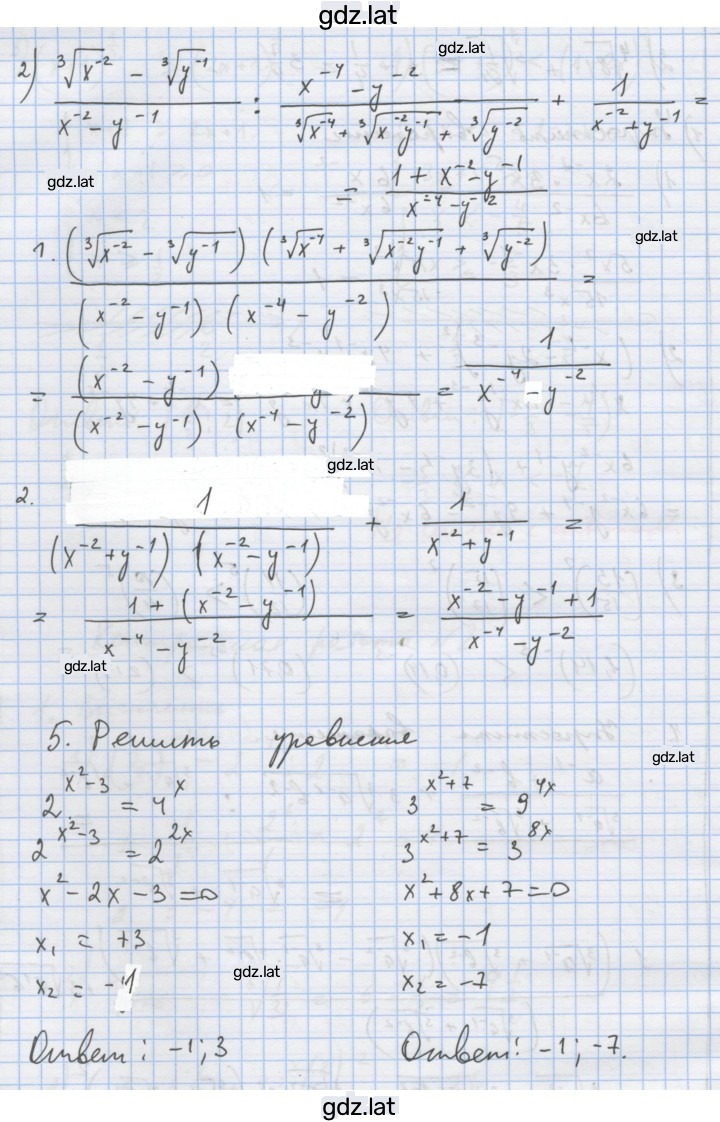 gdz.lat
2) (∛x⁻² - ∛y⁻¹)/(x⁻² - y⁻¹) : (x⁻⁴ - y⁻²)/(∛x⁻⁴ + ∛x⁻²y⁻¹ + ∛y⁻²) + 1/(x⁻² + y⁻¹) =
gdz.lat
gdz.lat
= (1 + x⁻² - y⁻¹)/(x⁻⁴ - y⁻²)
gdz.lat
1. (∛x⁻² - ∛y⁻¹) (∛x⁻⁴ + ∛x⁻²y⁻¹ + ∛y⁻²)/((x⁻² - y⁻¹) (x⁻⁴ - y⁻²)) =
= (x⁻² - y⁻¹)/((x⁻² - y⁻¹) (x⁻⁴ - y⁻²)) = 1/(x⁻⁴ - y⁻²)
gdz.lat
2. 1/((x⁻² + y⁻¹) (x⁻² - y⁻¹)) + 1/(x⁻² + y⁻¹) =
= (1 + (x⁻² - y⁻¹))/(x⁻⁴ - y⁻²) = (x⁻² - y⁻¹ + 1)/(x⁻⁴ - y⁻²)
gdz.lat
5. Решить уравнение
gdz.lat
2^(x²-3) = 4^x
2^(x²-3) = 2^(2x)
x² - 2x - 3 = 0
x₁ = +3
x₂ = -1
gdz.lat
Ответ: -1; 3
3^(x²+7) = 9^(4x)
3^(x²+7) = 3^(8x)
x² + 8x + 7 = 0
x₁ = -1
x₂ = -7
Ответ: -1; -7.
gdz.lat